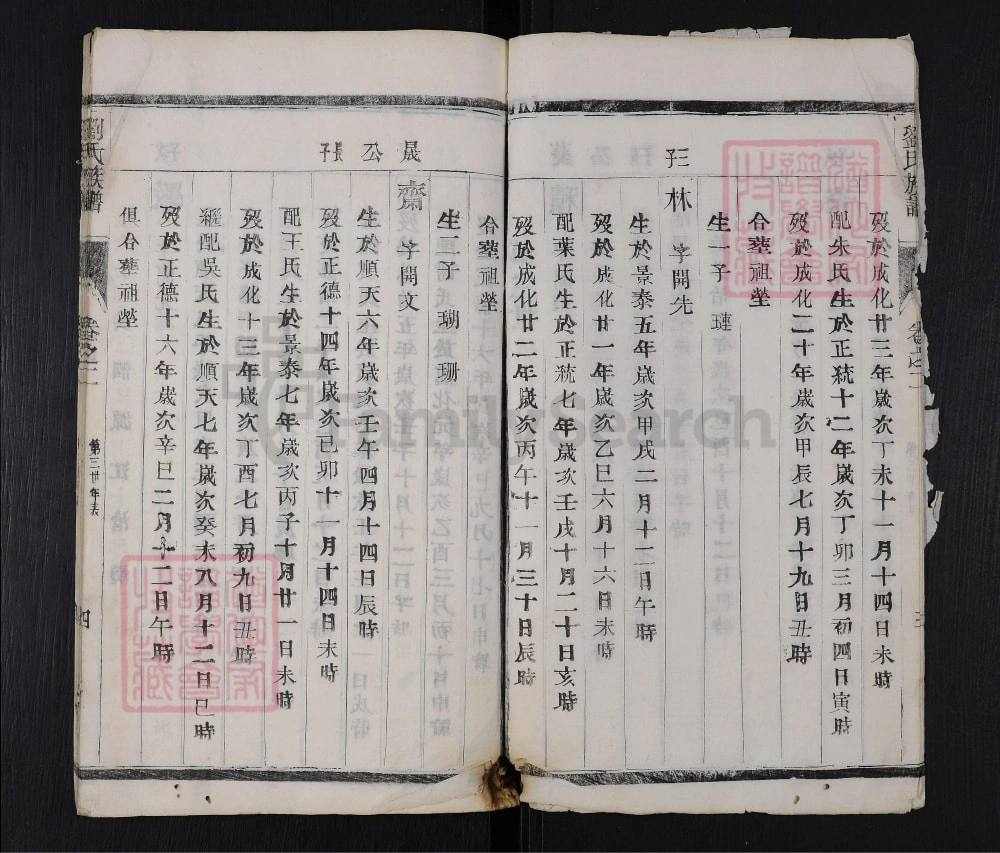 劉氏族譜
卷之二
三
歿於成化廿三年歲次丁未十一月十四日未時
配朱氏生於正統十二年歲次丁卯三月初四日寅時
歿於成化二十年歲次甲辰七月十九日丑時
合塟祖塋
生一子 璉
三子
林 字開先
生於景泰五年歲次甲戌二月十二日午時
歿於成化廿一年歲次乙巳六月十六日未時
配葉氏生於正統七年歲次壬戌十月二十日亥時
歿於成化廿二年歲次丙午十一月三十日辰時
合塟祖塋
生二子 瑚 珊
晟公長子
齋 字開文
生於順天六年歲次壬午四月十四日辰時
歿於正德十四年歲次己卯十一月十四日未時
配王氏生於景泰七年歲次丙子十月廿一日未時
歿於成化十三年歲次丁酉七月初九日丑時
繼配吳氏生於順天七年歲次癸未八月十二日巳時
歿於正德十六年歲次辛巳二月十二日午時
俱合塟祖塋
劉氏族譜
卷之二
第三世年表
四
FamilySearch